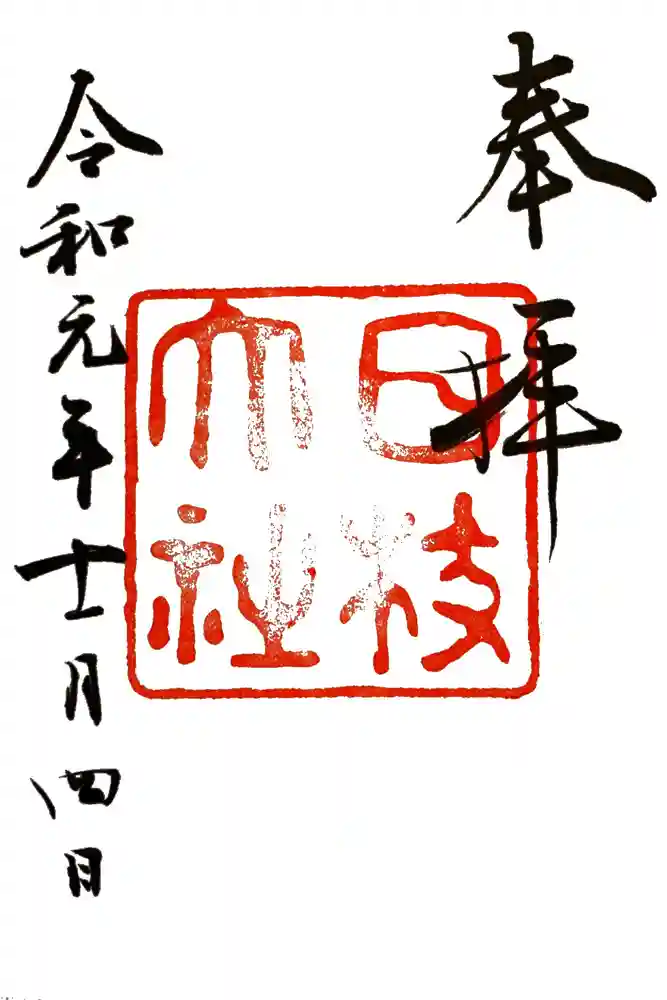 奉拝
日枝
大社
令和元年十一月四日